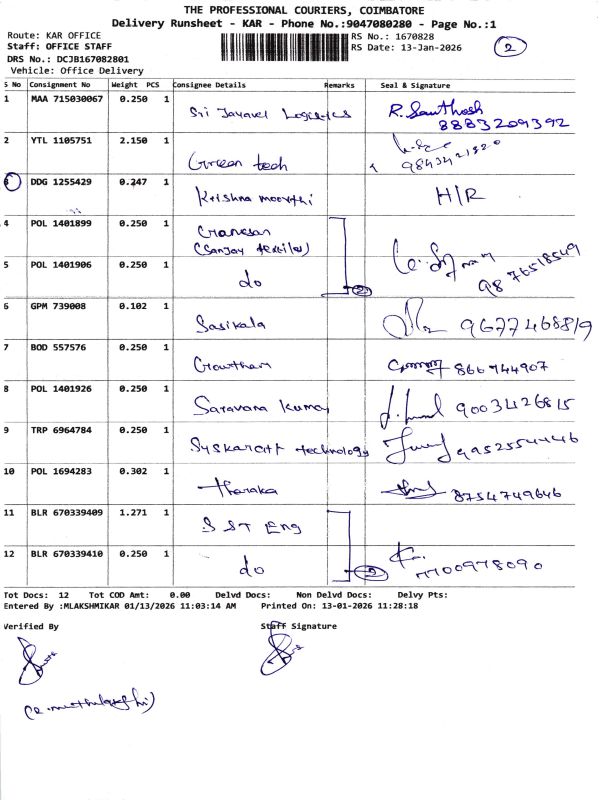 THE PROFESSIONAL COURIERS, COIMBATORE
Delivery Runsheet - KAR - Phone No.:9047080280 - Page No.:1
Route: KAR OFFICE
Staff: OFFICE STAFF
DRS No.: DCJB167082801
Vehicle: Office Delivery
RS No.: 1670828
RS Date: 13-Jan-2026
2
S No Consignment No Weight PCS Consignee Details Remarks Seal & Signature
1 MAA 715030067 0.250 1 Sri Jayavel Logistics R. Santhosh
8883209392
2 YTL 1105751 2.150 1 Green tech
3 DDG 1255429 0.247 1 Krishna moorthi H/R
4 POL 1401899 0.250 1 Ganesan
(Sanjay textiles)
5 POL 1401906 0.250 1 do 2 9876518549
6 GPM 739008 0.102 1 Sasikala 9677468819
7 BOD 557576 0.250 1 Gowtham 866744907
8 POL 1401926 0.250 1 Saravana Kumar 9003426815
9 TRP 6964784 0.250 1 technology 9952554446
10 POL 1694283 0.302 1 Tharaka 8754749646
11 BLR 670339409 1.271 1 S S T Eng
12 BLR 670339410 0.250 1 do 2 7700978090
Tot Docs: 12 Tot COD Amt: 0.00 Delvd Docs: Non Delvd Docs: Delvy Pts:
Entered By :MLAKSHMIKAR 01/13/2026 11:03:14 AM Printed On: 13-01-2026 11:28:18
Verified By Staff Signature